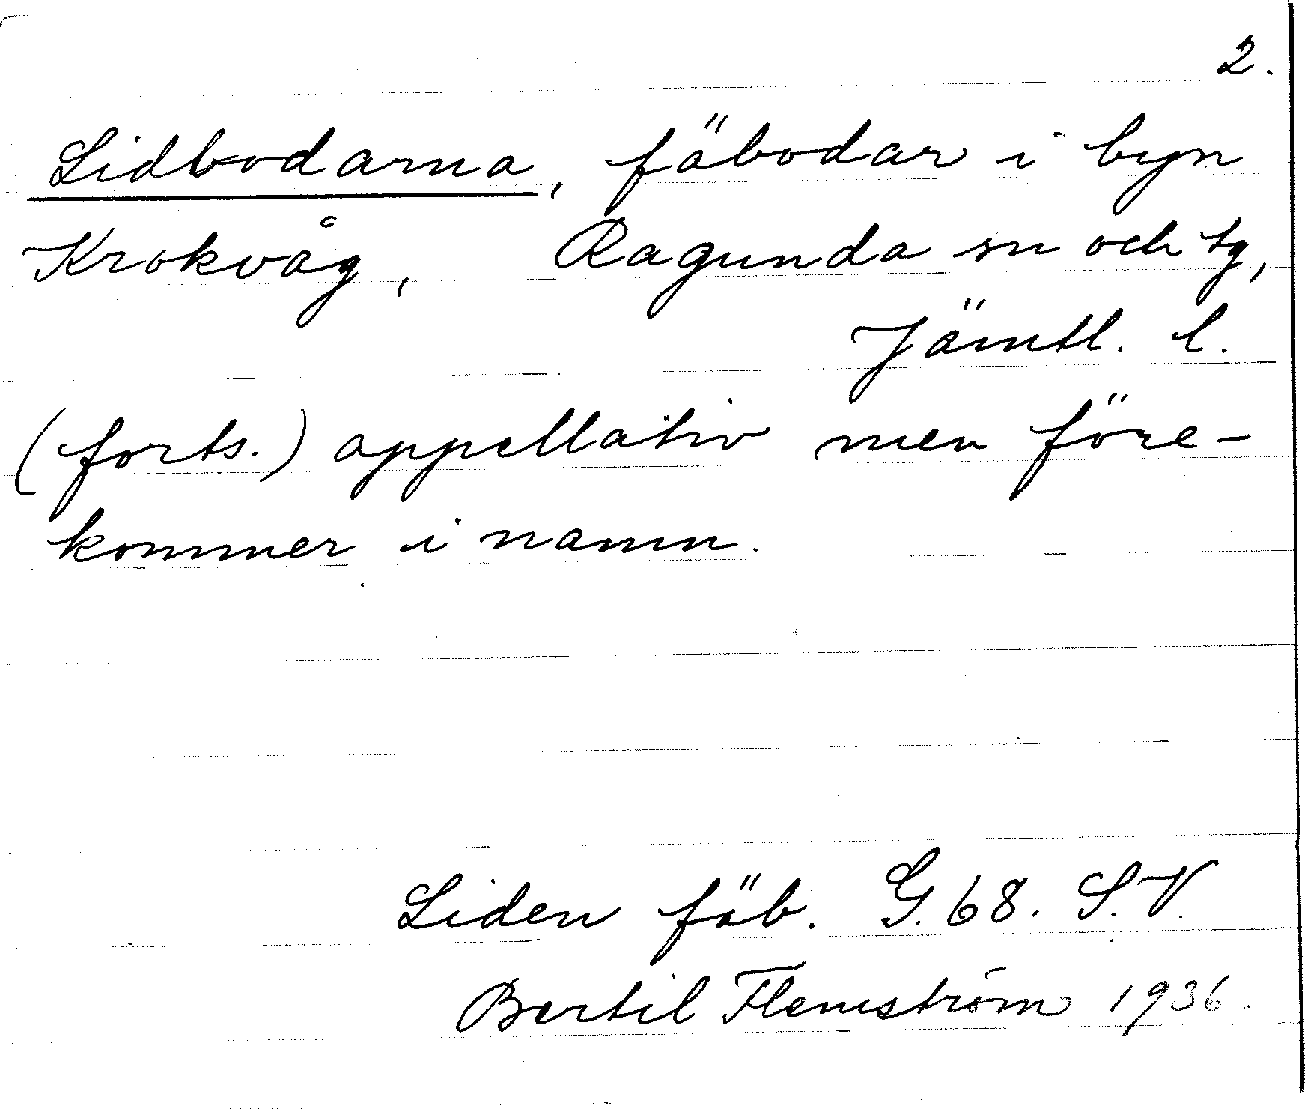 2.
Lidbodarna, fäbodar i byn
Krokvåg, Ragunda sn och tg,
Jämtl. l.
(forts.) appellativ men före-
kommer i namn.
Liden fäb. G. 68. S.V.
Bertil Flemström 1936.